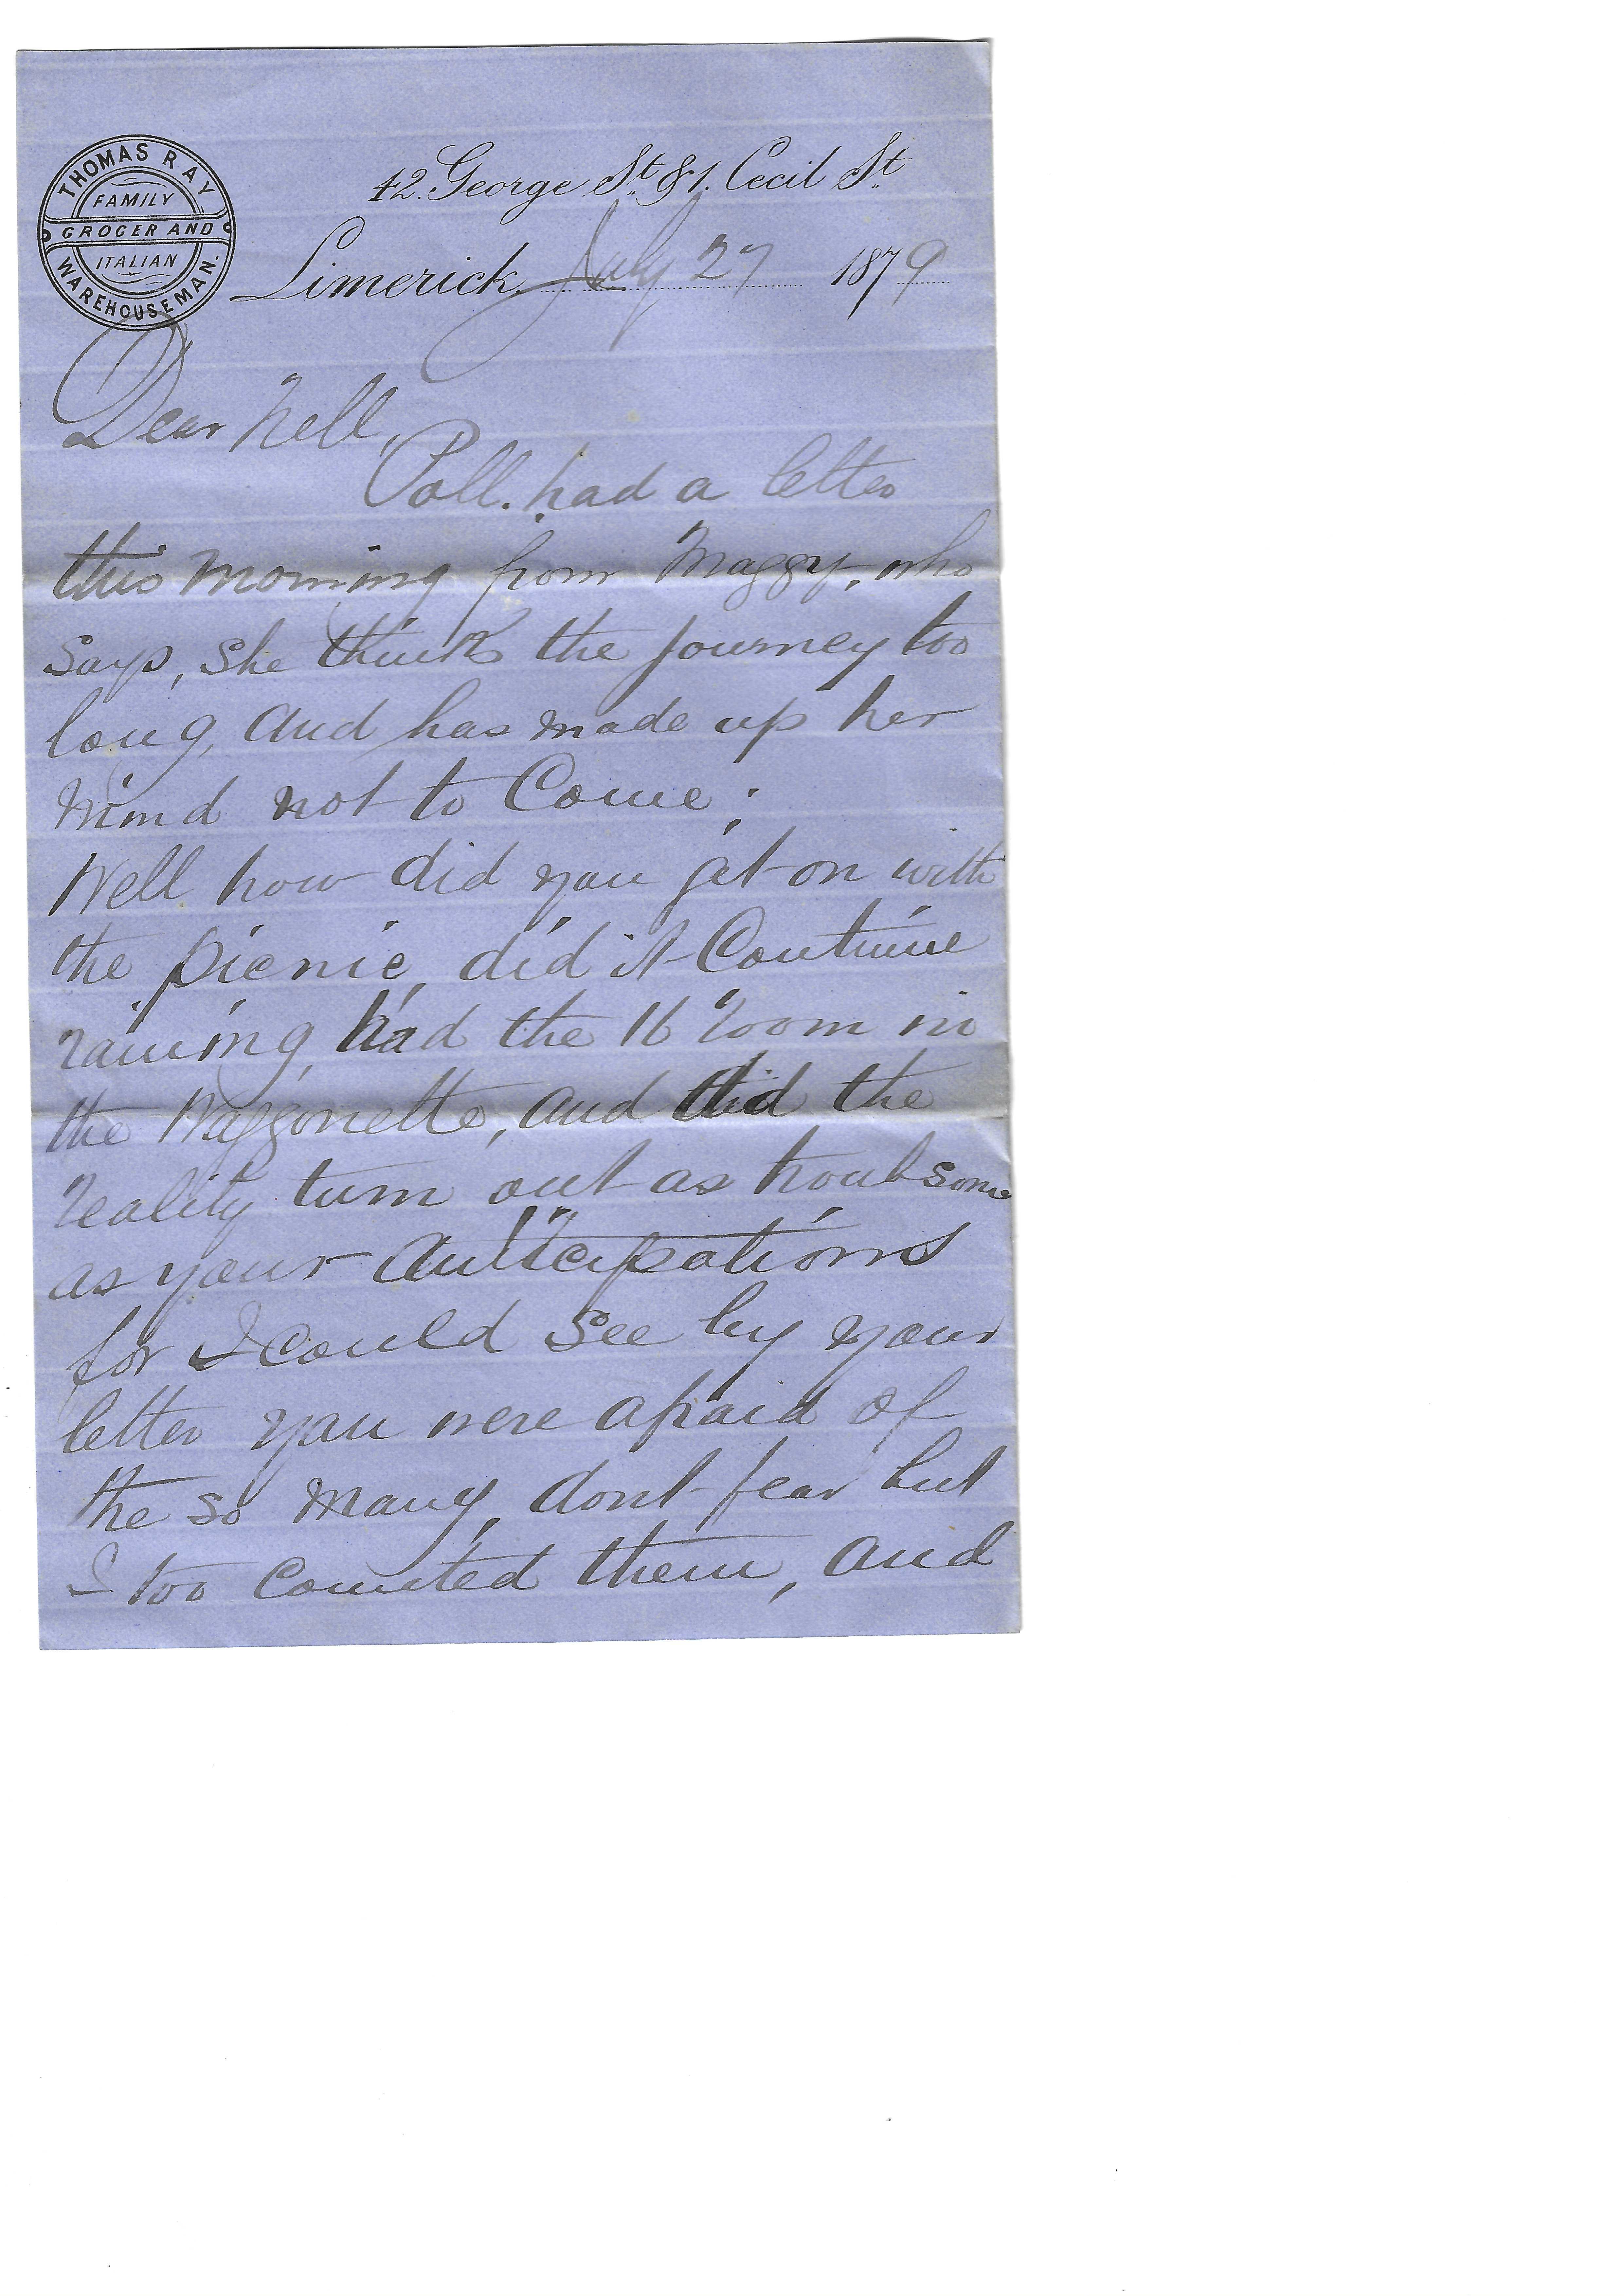 THOMAS RAY
FAMILY
GROCER AND
ITALIAN
WAREHOUSEMAN.
42. George St. & 1. Cecil St.
Limerick, July 27 1879
Dear Nell,
Poll. had a letter
this morning from Maggy, who
says, she thinks the journey too
long, and has made up her
mind not to Come.
Well how did you get on with
the picnic, did it Continue
raining, had the 16 room in
the Waggonette, and did the
reality turn out as troubsome
as your anticipations
for I could see by your
letter you were afraid of
the so many, dont fear but
I too Counted them, and